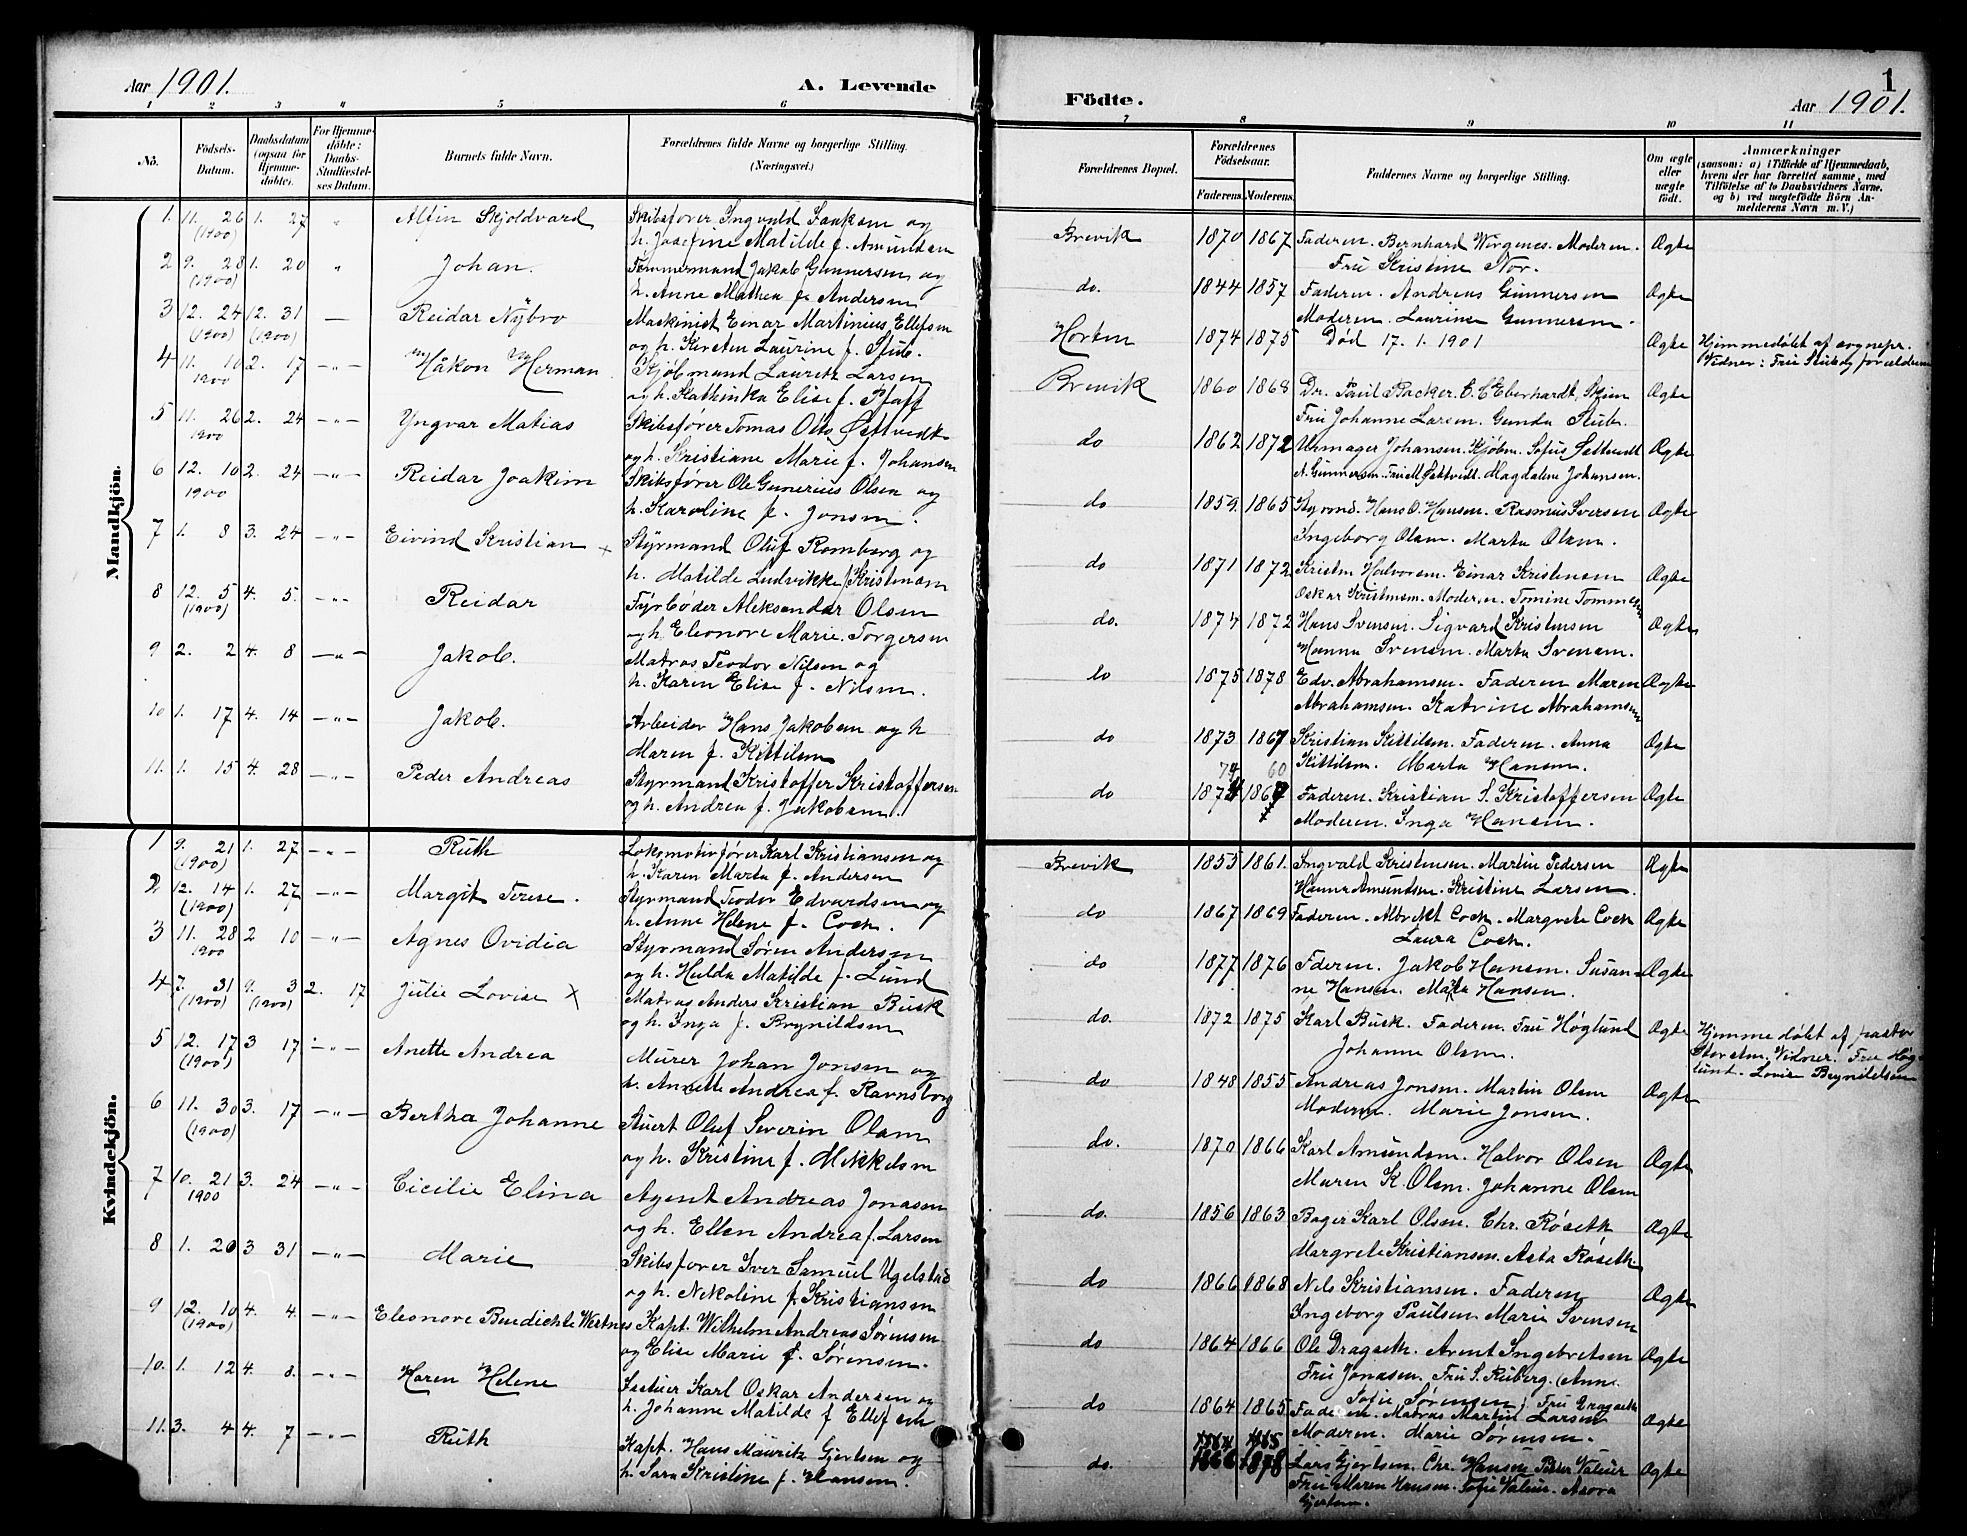 Aar 1901. A. Levende
1 2 3 4 5 6
No. Födsels-Datum. Daabsdatum (ogsaa for Hjemme-döbte). For Hjemme-döbte: Daabs-Stadfæstel-ses Datum. Barnets fulde Navn. Forældrenes fulde Navne og borgerlige Stilling. (Næringsvei.)
Mandkjön.
1. 11. 26 (1900) 1. 27 " Alfin Skjoldvard Skibsfører Ingvald Isaksen og
h. Josefine Matilde f. Amundsen
2 9. 28 (1900) 1. 20 " Johan. Tømmermand Jakob Gunnersen og
h. Anne Mathea f. Andersen
3 12. 24 (1900) 12. 31 (1900) — Reidar Nybro Maskinist Einar Martinius Ellefsen
og h. Kirsten Laurine f. Stub.
4 11. 10 1900 2. 17 -"- Håkon Herman Kjøbmand Lauritz Larsen
og h. Kathinka Elise f. Pfaff
5 11. 26 1900 2. 24 -"- Yngvar Matias Skibsfører Tomas Otto Settvedt
og h. Kristiane Marie f. Johansen
6 12. 10 1900 2. 24 -"- Reidar Joakim Skibsfører Ole Gunerius Olsen og
h. Karoline f. Jonsen.
7 1. 8 3. 24 -"- Eivind Kristian x Styrmand Oluf Romborg og
h. Matilde Ludvikke f. Kristensen
8 12. 5 (1900) 4. 5. -"- Reidar Fyrbøder Aleksander Olsen
og h. Eleonore Marie. Torgersen
9 2. 2 4. 8 -"- Jakob. Matros Teodor Nilsen og
h. Karen Elise f. Nilsen.
10 1. 17 4. 14 -"- Jakob. Arbeider Hans Jakobsen og h
Maren f. Kittilsen
11. 1. 15 4. 28 -"- Peder Andreas Styrmand Kristoffer Kristoffersen
og h. Andrea f. Jakobsen.
Kvindekjön.
1 9. 21 (1900) 1. 27 -"- Ruth Lokomotivfører Karl Kristiansen og
h. Karen Marta f. Andersen
2 12. 14 (1900) 1. 27 -"- Margit Terese. Styrmand Teodor Edvardsen og
h. Anne Helene f. Coch.
3 11. 28 1900 2 10 -"- Agnes Ovidia Styrmand Søren Andersen
og h. Hulda Matilde f. Lund
4 7. 31 (1900) 9. 3 (1900) 2. 17 Julie Lovise x Matros Anders Kristian Busk
og h. Inga f. Brynildsen
5 12. 17 (1900) 3 17 -"- Anette Andrea Murer Johan Jonsen og
h. Annette Andrea f. Ravnsborg
6 11. 30 (1900) 3. 17 -"- Bertha Johanne Stuert Oluf Severin Olsen
og h. Kristine f. Mikkelsen
7 10. 21 1900 3. 24 -"- Cicilie Elina Agent Andreas Jonasen
og h. Ellen Andrea f. Larsen
8 1. 20 3 31 -"- Marie Skibsfører Iver Samuel Ugelstad
og h. Nikoline f. Kristiansen
9 12. 10 (1900) 4. 4. -"- Eleonore Bendichte Westnes Kapt. Wilhelm Andreas Sørensen
og Elise Marie f. Sørensen.
10. 1. 12 4. 8. -"- Karen Helene Karl Oskar Andersen og
h. Johanne Matilde f Ellefsen
11. 3. 4 4. 7 -"- Ruth Kapt. Hans Mauritz Gjertsen og
h. Sara Kristine f. Hansen.
1
Födte. Aar 1901.
7 8 9 10 11
Forældrenes Bopæl. Forældrenes Födselsaar. Faderens. Moderens. Faddernes Navne og borgerlige Stilling. Om ægte eller uægte födt. Anmærkninger (saasom: a) i Tilfælde af Hjemmedaab, hvem der har forrettet samme, med Tilföielse af to Daabsvidners Navne. og b) ved uægtefödte Börn An-melderens Navn m. V.)
Brevik 1870 1867 Faderen. Bernhard Wirgenes. Moderen. Ægte
Fru Kristine Nor.
do. 1844 1857 Faderen. Andreas Gunnersen Ægte
Moderen. Laurine Gunnersen.
Horten 1874 1875 Død 17. 1. 1901 Ægte Hjemmedøbt af sognepr.
Vidner: Fru Stub og forældrene
Brevik 1860 1868 Dr. Paul Backer. C. S Eberhardt, Skien Ægte
Fru Johanne Larsen. Gunda Stub.
do 1862 1872 Uhrmager Johansen. Kjøbm. Sofus Settvedt Ægte
A. Gunnersen. Fru M. Settvedt. Magdalene Johansen.
do 1859. 1865 Styrmd. Hans O. Hansen. Rasmus Iversen Ægte
Ingeborg Olsen. Marta Olsen.
do 1871 1872 Kristen Halvorsen. Einar Kristensen Ægte
Oskar Kristensen. Moderen. Tomine Tommesen
do. 1874 1872 Hans Svensen. Sigvard Kristensen Ægte
Hanna Svensen. Marta Svensen.
do 1875 1878 Edv. Abrahamsen. Faderen Maren Ægte
Abrahamsen. Katrine Abrahamsen
do 1873 1867 Kristian Kittilsen. Faderen. Anna Ægte
Kittilsen. Marta Hansen.
74 60
do 1874 1867 Faderen. Kristian S. Kristoffersen Ægte
Moderen. Inga Hansen.
Brevik 1855 1861. Ingvald Kristensen. Martin Pedersen Ægte
Hanna Amundsen. Kristine Larsen.
do 1867 1869 Faderen. Albrekt Coch. Margrete Coch Ægte
Laura Coch.
do 1877 1876 Fderen. Jakob Hansen. Susan- Ægte
ne Hansen. Marta Hansen.
do. 1872 1875 Karl Busk. Faderen. Fru Høglund Ægte Hjemmedøbt af pastor
Johanne Olsen. Vidner. Fru Høg-
lund. Lovise Brynildsen
do 1848 1855 Andreas Jonsen. Martin Olsen Ægte
Moderen. Marie Jonsen.
do. 1870 1866 Karl Amundsen. Halvor Olsen Ægte
Maren K. Olsen. Johanne Olsen
do. 1856 1863 Bager Karl Olsen. Chr. Røseth Ægte
Margrete Kristiansen. Asta Røseth.
do 1866 1868 Nils Kristiansen. Faderen Ægte
Ingeborg Paulsen. Marie Svensen
do 1864 1866 Ole Dragseth. Arent Ingebretsen Ægte
Fru Jonasen. Fru S. Ruberg. (Anne
Sofie Sørensen) Fru Dragseth
do 1864 1865 Faderen. Matros Martin Larsen Ægte
Moderen. Marie Sørensen.
1864 1865
do. 1866 1878 Lars Gjertsen. Chr. Hansen Peter Valeur Ægte
Fru Maren Hansen. Sofie Valeur.
Gjertsen.